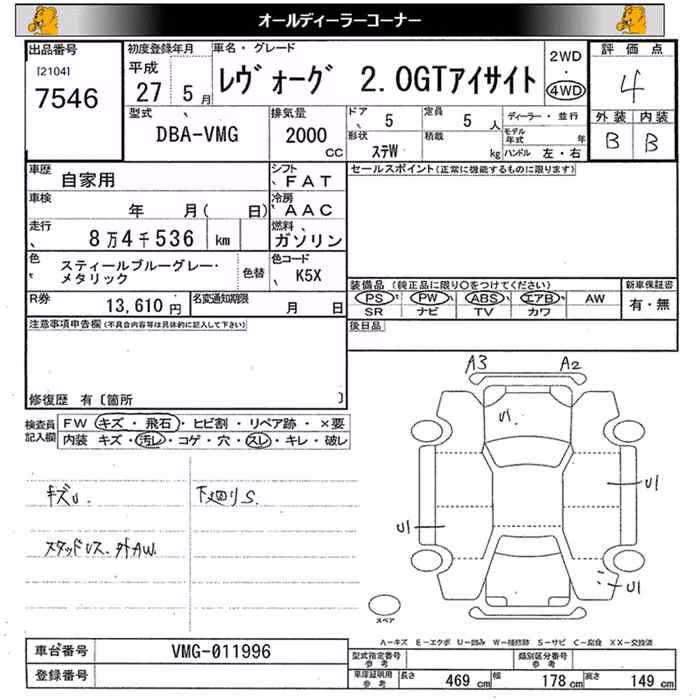 オールディーラーコーナー
出品番号 初度登録年月 車名・グレード 2WD 評価点
[2104] 平成 レヴォーグ 2.0GTアイサイト ・ 4
7546 27 5月 4WD 外装 内装
型式 排気量 ドア 定員 ディーラー・並行 B B
DBA-VMG 2000 CC 5 5人 モデル年式 年
形状 積載
ステW kg ハンドル 左・右
車歴 自家用 シフト FAT セールスポイント(正常に機能するものに限ります)
車検 年 月( 日) 冷房 AAC
走行 8万4千536 km 燃料 ガソリン
色 スティールブルーグレー・メタリック 色替 色コード K5X
装備品 (純正品に限り○をつけてください) 新車保証書
PS PW ABS エアB AW 有・無
SR ナビ TV カワ
R券 13,610円 名変通知期限 月 日
後日品
注意事項申告欄(不具合内容等は具体的に記入して下さい)
修復歴 有〔箇所 〕
検査員記入欄 FW キズ・飛石・ヒビ割・リペア跡・×要
内装 キズ・汚レ・コゲ・穴・スレ・キレ・破レ
キズU. 下廻りS.
スタッドレス.外AW.
A3 A2
U1
U1
U1
U1
スペア
A-キズ E-エクボ U-凹み W-補修跡 S-サビ C-腐食 XX-交換済
車台番号 VMG-011996 型式指定番号 参考 類別区分番号 参考
登録番号 車庫証明用 参考 長さ 469cm 幅 178cm 高さ 149cm